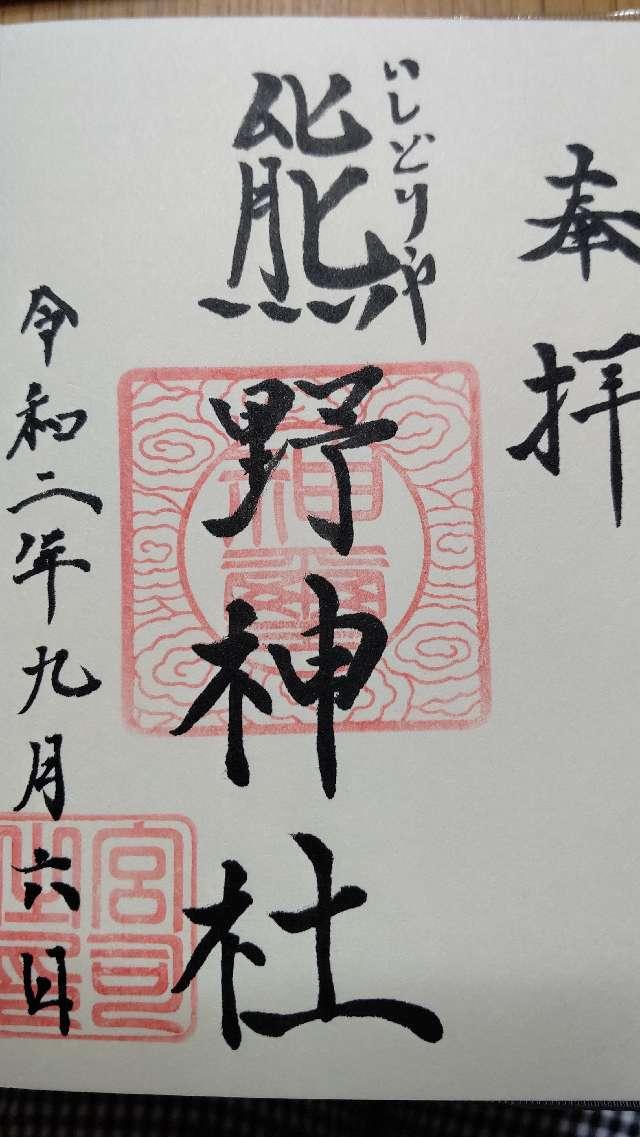 奉拝
いしどりや
熊野神社
神璽
令和二年九月六日
宮司之印